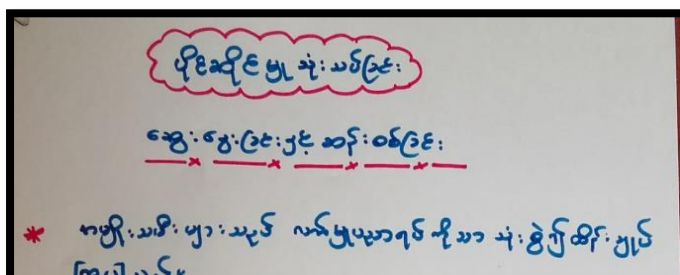 ပိုင်ဆိုင်မှု သုံးသပ်ခြင်း
ဆွေးနွေးခြင်းနှင့် ဆန်းစစ်ခြင်း
* အမျိုးသမီးများသည် လက်မှုပညာရပ်ကိုသာ သုံးစွဲ၍ ထိန်းချုပ်